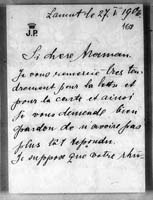 Lamut le 27. I 1906
J.P.
160
Si chere Maman.
Je vous remercie tres ten-
drement pour la lettre et
pour la carte et ainsi
Je vous demande bien
pardon de n'avoir pas
plus tôt répondu.
Je suppose que votre rhu-